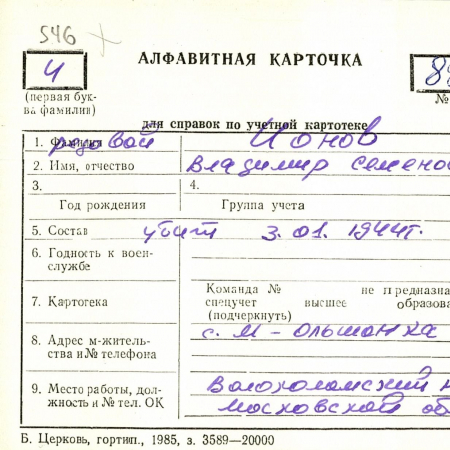 546
АЛФАВИТНАЯ КАРТОЧКА
И
(первая бук-
ва фамилии)
№
для справок по учетной картотеке
1. Фамилия рядовой Ионов
2. Имя, отчество Владимир Семенов
3. 4.
Год рождения Группа учета
5. Состав убит 3.01.1944г.
6. Годность к воен-
службе
Команда № не предназна
7. Картотека спецучет высшее образова
(подчеркнуть)
с. М-Ольшанка
8. Адрес м-житель-
ства и № телефона
Волоколамский
9. Место работы, дол-
жность и № тел. ОК Московской об
Б. Церковь, гортип., 1985, з. 3589—20000